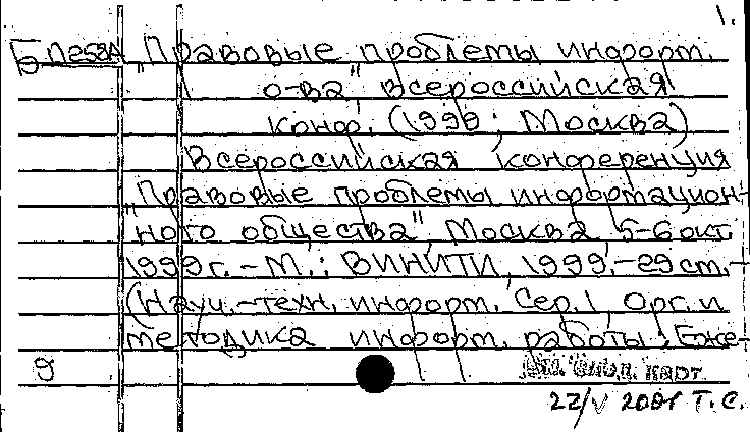 1.
Б пе58А „Правовые проблемы информ.
о-ва" всероссийская
конф. (1999; Москва)
Всероссийская конференция
„Правовые проблемы информацион-
ного общества", Москва 5-6 окт.
1999г. – М.: ВИНИТИ, 1999. – 29 ст. –
(Науч.-техн. информ. Сер.1, Орг. и
методика информ. работы; Еже-
9
карт.
22/V 2001 Т.С.